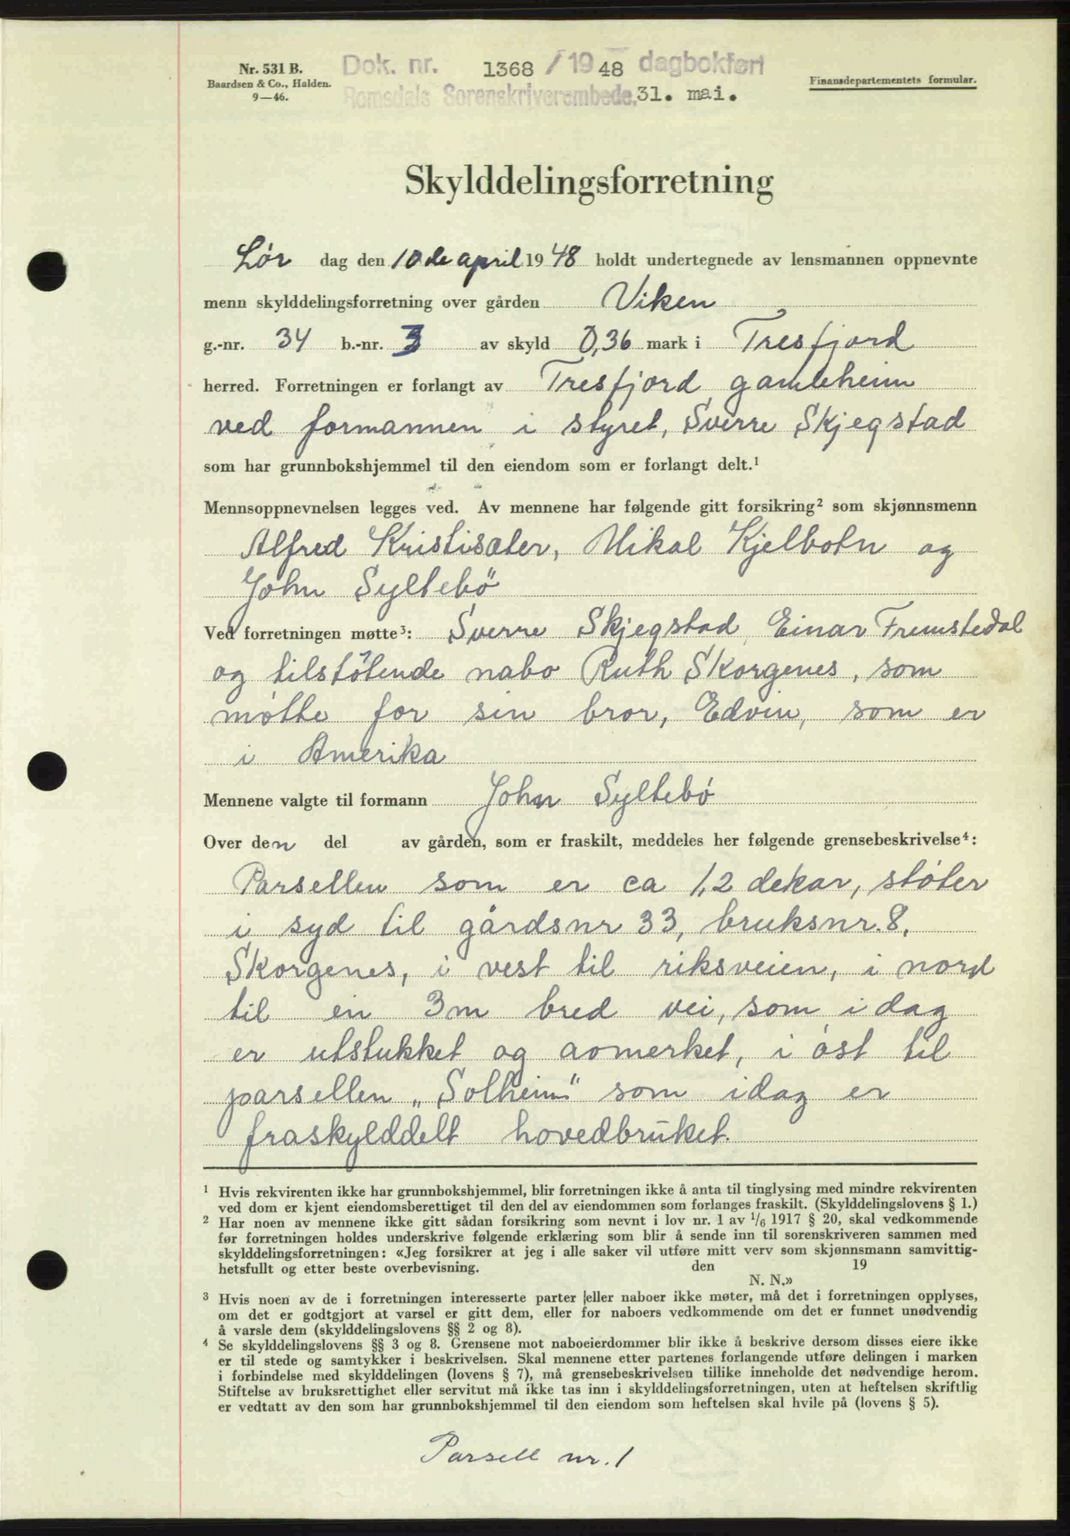 Nr. 531 B.
Baardsen & Co., Halden.
9—46.
Dok. nr. 1368 / 1948 dagbokført
Romsdals Sorenskriverembede. 31. mai.
Finansdepartementets formular.
Skylddelingsforretning
Lør dag den 10de april 1948 holdt undertegnede av lensmannen oppnevnte
menn skylddelingsforretning over gården Viken
g.-nr. 34 b.-nr. 3 av skyld 0,36 mark i Tresfjord
herred. Forretningen er forlangt av Tresfjord gamleheim
ved formannen i styret, Sverre Skjegstad
som har grunnbokshjemmel til den eiendom som er forlangt delt.¹
Mennsoppnevnelsen legges ved. Av mennene har følgende gitt forsikring² som skjønnsmenn
Alfred Kristisæter, Mikal Kjelbotn og
John Syltebö
Ved forretningen møtte³: Sverre Skjegstad Einar Fremstedal
og tilstøtende nabo Ruth Skorgenes, som
møtte for sin bror, Edvin, som er
i Amerika
Mennene valgte til formann John Syltebø
Over den del av gården, som er fraskilt, meddeles her følgende grensebeskrivelse⁴:
Parsellen som er ca 1,2 dekar, støter
i syd til gårdsnr 33, bruksnr. 8,
Skorgenes, i vest til riksveien, i nord
til en 3m bred vei, som i dag
er utstukket og avmerket, i øst til
parsellen „Solheim" som idag er
fraskylddelt hovedbruket.
¹ Hvis rekvirenten ikke har grunnbokshjemmel, blir forretningen ikke å anta til tinglysing med mindre rekvirenten
ved dom er kjent eiendomsberettiget til den del av eiendommen som forlanges fraskilt. (Skylddelingslovens § 1.)
² Har noen av mennene ikke gitt sådan forsikring som nevnt i lov nr. 1 av 1/6 1917 § 20, skal vedkommende
før forretningen holdes underskrive følgende erklæring som blir å sende inn til sorenskriveren sammen med
skylddelingsforretningen: «Jeg forsikrer at jeg i alle saker vil utføre mitt verv som skjønnsmann samvittig-
hetsfullt og etter beste overbevisning. den 19
N. N.»
³ Hvis noen av de i forretningen interesserte parter eller naboer ikke møter, må det i forretningen opplyses,
om det er godtgjort at varsel er gitt dem, eller for naboers vedkommende om det er funnet unødvendig
å varsle dem (skylddelingslovens §§ 2 og 8).
⁴ Se skylddelingslovens §§ 3 og 8. Grensene mot naboeierdommer blir ikke å beskrive dersom disses eiere ikke
er til stede og samtykker i beskrivelsen. Skal mennene etter partenes forlangende utføre delingen i marken
i forbindelse med skylddelingen (lovens § 7), må grensebeskrivelsen tillike inneholde det nødvendige herom.
Stiftelse av bruksrettighet eller servitut må ikke tas inn i skylddelingsforretningen, uten at heftelsen skriftlig
er vedtatt av den som har grunnbokshjemmel til den eiendom som heftelsen skal hvile på (lovens § 5).
Parsell nr. 1